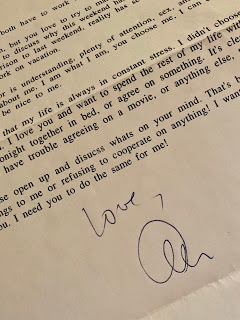 both have to work
, but you love to try to ma
to discuss this weekend, ha
rison to last weekend, reality has se
ork on vacation.
or is understanding, plenty of attention, sex, an
about me. I am what I am, you choose me. I can c
be nice to me.
that my life is always in constant stress. I didn't choose
. I love you and want to spend the rest of my life wi
onight together in bed, or agree on something. It's clea
have trouble agreeing on a movie, or anything else,
se open up and disucss whats on your mind. That's h
ngs to me or refusing to cooperate on anything! I want
ou. I need you to do the same for me!
Love,